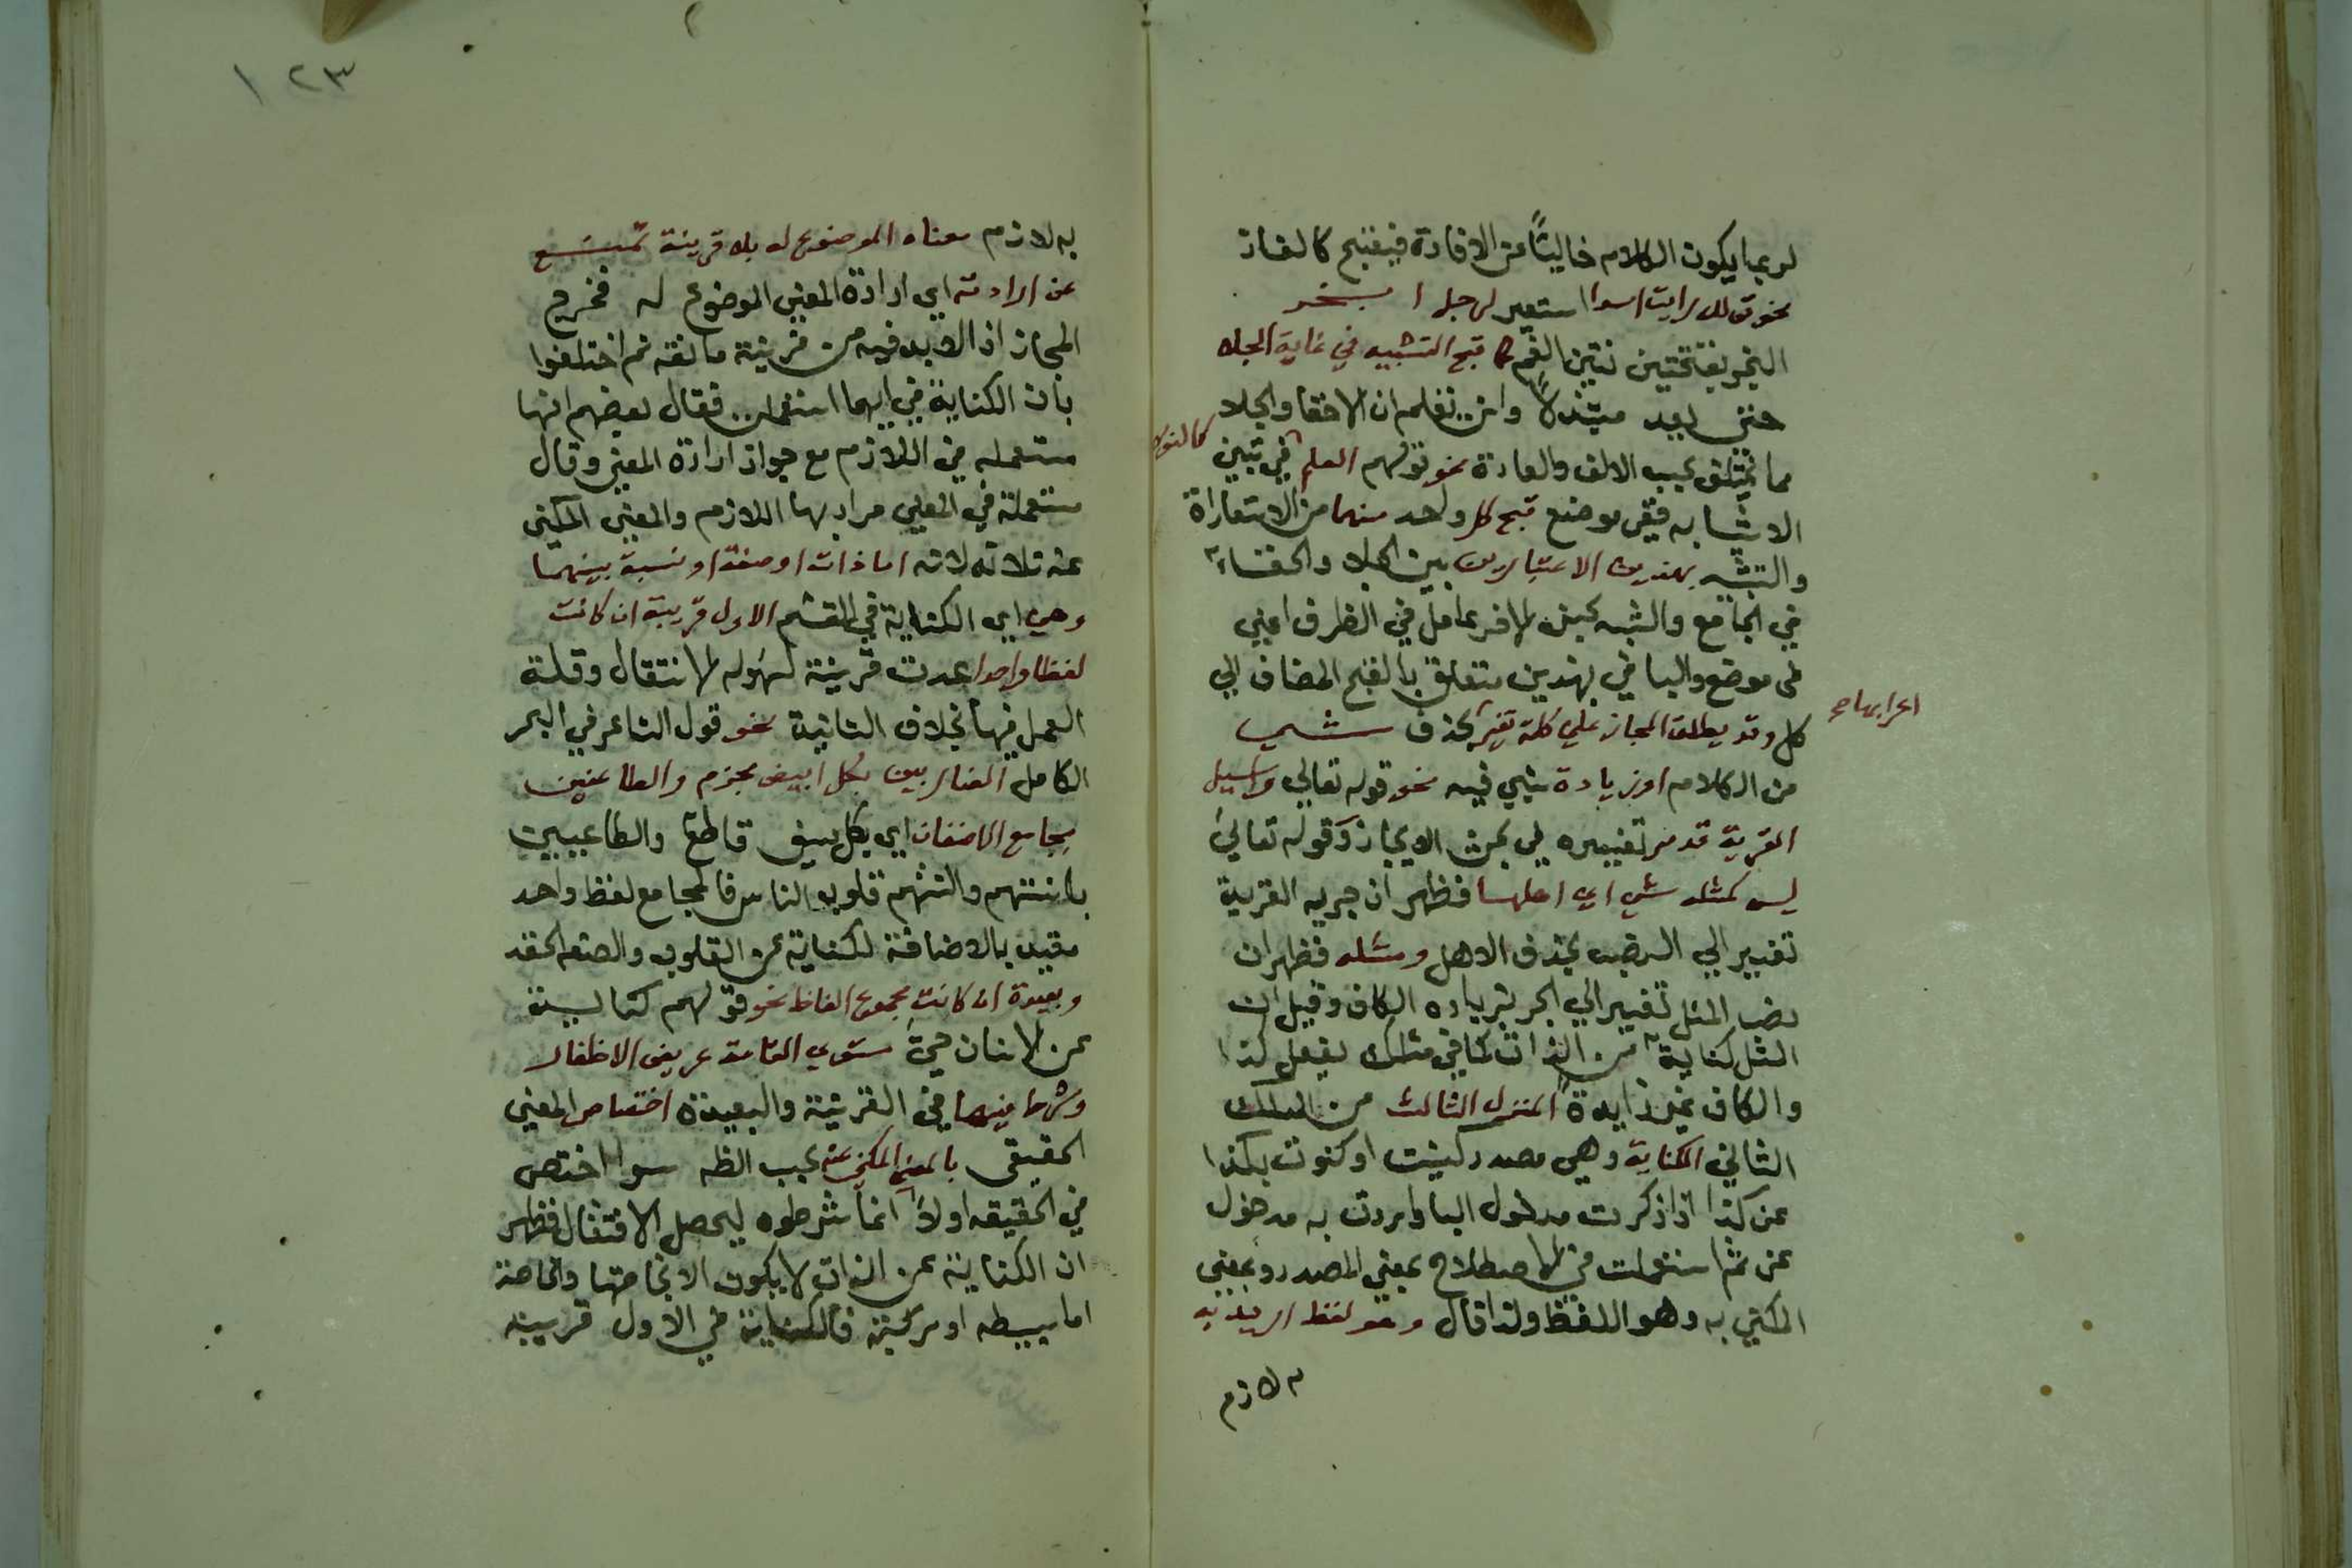 لربما يكون الكلام خاليًا عن الافادة فيقبح كالغاز
نحو قولك رايت اسدا استعير لرجل ابخر
البخر بفتحتين نتن الفم كما قبح التشبيه في غاية الجلا
حتي يعد مبتذلاً وانت تعلم ان الاخفا والجلا
مما يختلف بحسب الالف والعادة نحو قولهم العلم في تبين كالنور
الاشتباه ففي موضع قبح كل واحد منهما من الاستعاراة
والتشبيه بهذين الاعتبارين بين الجلا والخفاء
في الجامع والشبه حسن الاخر عامل في الظرف اعني
في موضع والبا في بهذين متعلق بالقبح المضاف الي
كل وقد يطلق المجاز علي كلمة تغير اعرابها صح بحذف شي
من الكلام او زيادة شي فيه نحو قوله تعالي واسيل
القرية قد مر تفسيره في بحث الايجاز وقوله تعالي
ليس كمثله شي اي اهلها فظهر ان جريه القرية
تغيير الي النصب بحذف الاهل ومثله فظهر ان
نصب المثل تغيير الي الجر بزياده الكاف وقيل ان
المثل كناية من الذات كما في مثلك يفعل كذا
والكاف غير زايدة المنزل الثالث من المسلك
الثاني الكناية وهي مصدر كنيت او كنوت بكذا
عن كذا اذا ذكرت مدخول البا واردت به مدخول
عن ثم استعملت في الاصطلاح بمعني المصدر وبمعني
المكني به وهو اللفظ ولذا قال وهو لفظ اريد به
لازم
١٢٣
به لازم معناه الموضوع له بلا قرينة تمنع
عن ارادته اي ارادة المعني الموضوع له فخرج
المجاز اذ لا بد فيه من قرينة مانعة ثم اختلفوا
بان الكناية في ايهما استعملت فقال بعضهم انها
مستعمله في اللازم مع جواز ارادة المعني وقال
مستعملة في المعني مراد بها اللازم والمعني المكني
عنه ثلاثة لانه اما ذات او صفة او نسبة بينهما
وهي اي الكناية في القسم الاول قريبة ان كانت
لفظا واحدا عدت قرينة لسهوله الانتقال وقلة
العمل فيها بخلاف الثانية نحو قول الشاعر في البحر
الكامل الضاربين بكل ابيض مخذم والطاعنين
مجامع الاضغان اي بكل سيف قاطع والطاعنين
باسنتهم والسنتهم قلوب الناس فالمجامع لفظ واحد
مقيد بالاضافة لكناية عن القلوب والضغن الحقد
وبعيدة ان كانت مجموع الفاظ نحو قولهم كناية
عن الانسان حي مستوي القامة عريض الاظفار
وشرط فيهما في القرينة والبعيدة اختصاص المعني
الحقيقي بالمعني المكني عنه بحسب الظـ سوا اختص
في الحقيقه اولا انما شرطوه ليحصل الانتقال فظهر
ان الكناية عن الذات لا يكون الا بخاصتها والخاصة
اما بسيطه او مركبة فالكناية في الاول قريبه